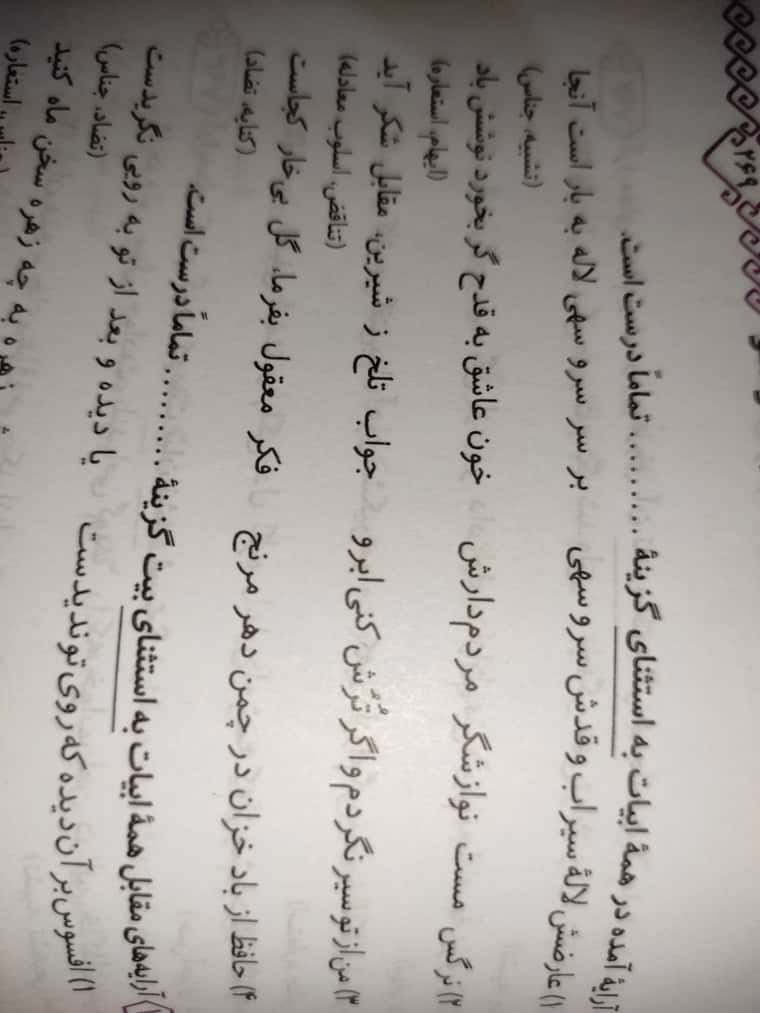 ۲۶۹
آرایهٔ آمده در همهٔ ابیات به استثنای گزینهٔ .......... تماماً درست است.
۱) عارضش لالهٔ سیراب و قدش سرو سهی بر سر سرو سهی لاله به بار است آنجا
(تشبیه، جناس)
۲) نرگس مست نوازشگر مردم‌دارش خون عاشق به قدح گر بخورد نوشش باد
(ایهام، استعاره)
۳) من از تو سیر نگردم واگر تُرُش کنی ابرو جواب تلخ ز شیرین، مقابل شکر آید
(تناقض، اسلوب معادله)
۴) حافظ از باد خزان در چمن دهر مرنج فکر معقول بفرما، گل بی‌خار کجاست
(کنایه، تضاد)
آرایه‌های مقابل همهٔ ابیات به استثنای بیت گزینهٔ .......... تماماً درست است.
۱) افسوس بر آن دیده که روی تو ندیدست یا دیده و بعد از تو به رویی نگریدست
(تضاد، جناس)
زهره به چه زهره سخن ماه کنید
(جناس، استعاره)